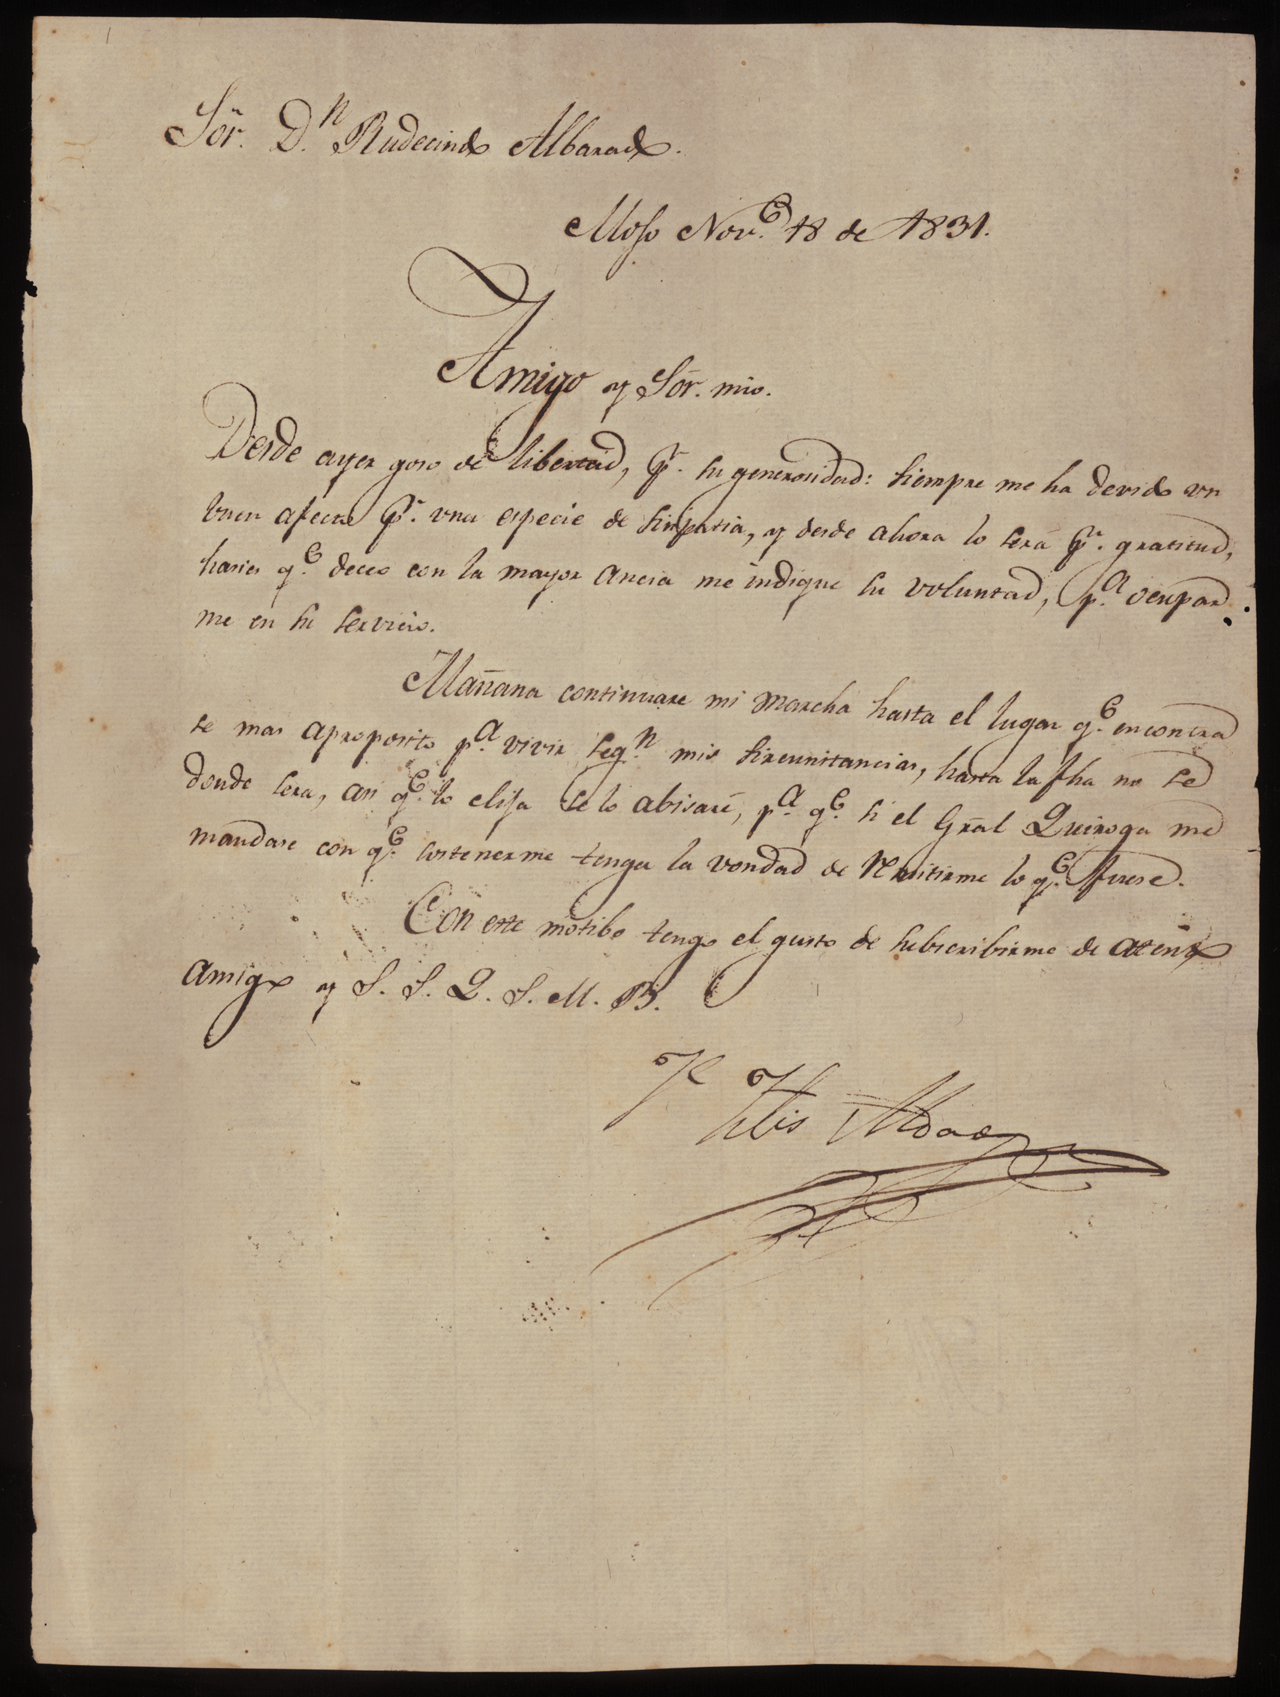 Sōr. D.n Rudecindo Albarado.
Moso Nov.e 18 de 1831.
Amigo y Sōr. mio.
Desde ayer goso de libertad, p.r su generosidad: siempre me ha devido un
buen afecto p.r una especie de simpatia, y desde ahora lo sera p.r gratitud,
hasies q.e deceo con la mayor ancia me indique su voluntad, p.a ocupar
me en su servicio.
Mañana continuare mi marcha hasta el lugar q.e encontra
se mas aproposito p.a vivir seg.n mis sircunstancias, hasta la fha no se
donde sera, asi q.e lo elija se lo abisaré, p.a q.e si el Grãl Quiroga me
mandase con q.e sostenerme tenga la vondad de remitirme lo q.e fuese.
Con este motibo tengo el gusto de subscribirme de atento
Amigo y S. S. Q. S. M. B.
Felis Aldao